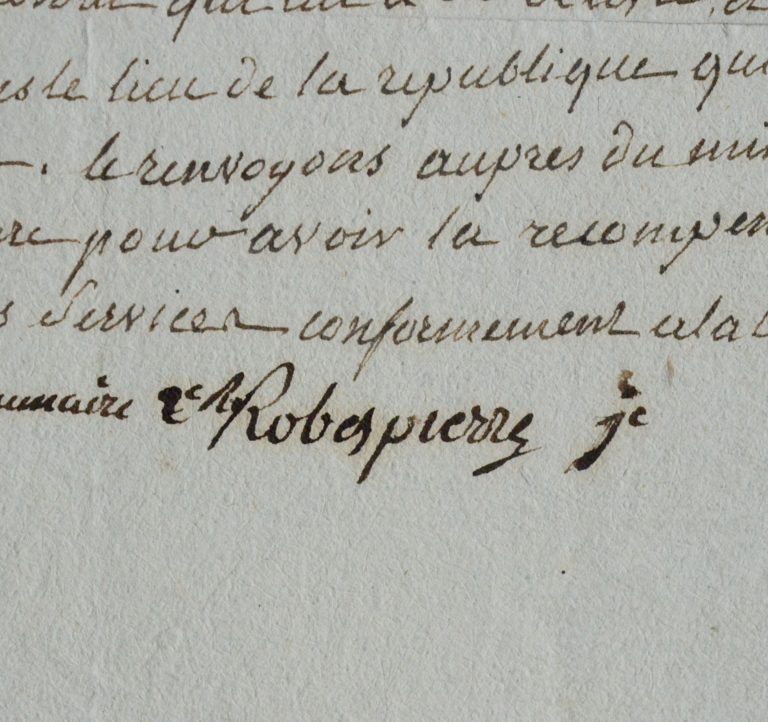 qui
es le lieu de la republique qui
le renvoyons aupres du mi
re pour avoir la recompen
s services conformement a la
Robespierre je